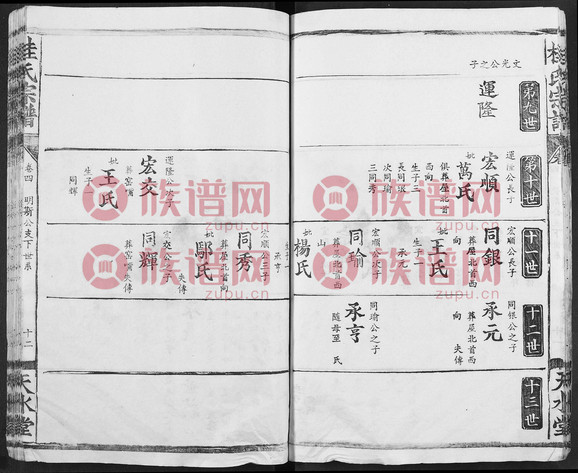 桂氏宗譜
天水堂
第九世
文光公之子
運隆
第十世
運隆公長子
宏順
妣萬氏
俱葬屋北首
西向
生子三
長同銀
次同瑜
三同秀
運隆公次子
宏交
葬窑嘴
妣王氏
生子一
同輝
十一世
宏順公長子
同銀
葬屋北首西
向
妣王氏
生子一
承元
宏順公次子
同瑜
葬屋北首西
山
妣楊氏
生子一
承亨
宏順公三子
同秀
葬屋北首向
妣鄢氏
失傳
宏交公之子
同輝
葬窑嘴失傳
十二世
同銀公之子
承元
葬屋北首西
向 失傳
同瑜公之子
承亨
隨母至 氏
十三世
桂氏宗譜
卷四 明瑜公支下世系
十二
天水堂
族谱网
zupu.cn
族谱网
zupu.cn
族谱网
zupu.cn
族谱网
zupu.cn